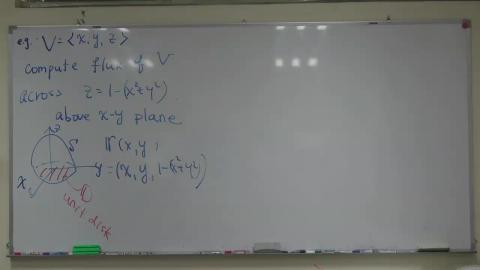 e.g. V = <x, y, z>
compute flux of V
across z = 1-(x²+y²)
above x-y plane
z
S
r(x, y)
= (x, y, 1-(x²+y²))
y
x
D
unit disk